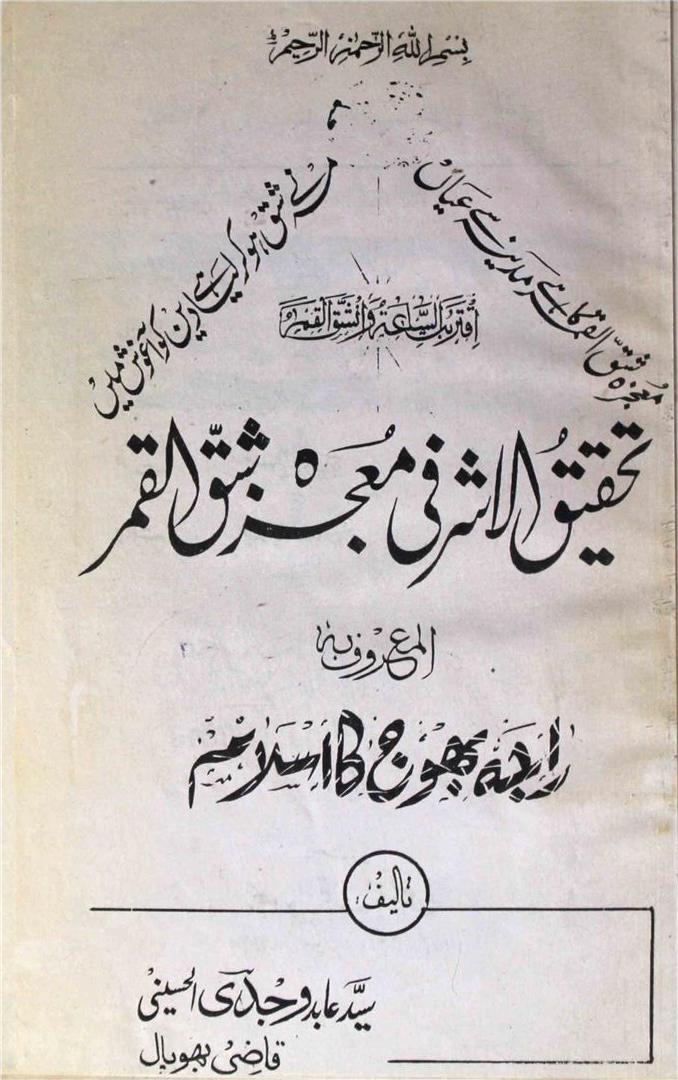 بسم اللہ الرحمٰن الرحیم
معجزہ شق القمر کا ہے مدینہ سے عیاں
مہ نے شق ہو کر لیا ہے دین کو آغوش میں
اقتربت الساعة وانشق القمر
تحقیق الاثر فی معجزہ شق القمر
المعروف بہ
راجہ بھوج کا اسلام
تالیف:
سیّد عابد وجدی الحسینی
قاضی بھوپال